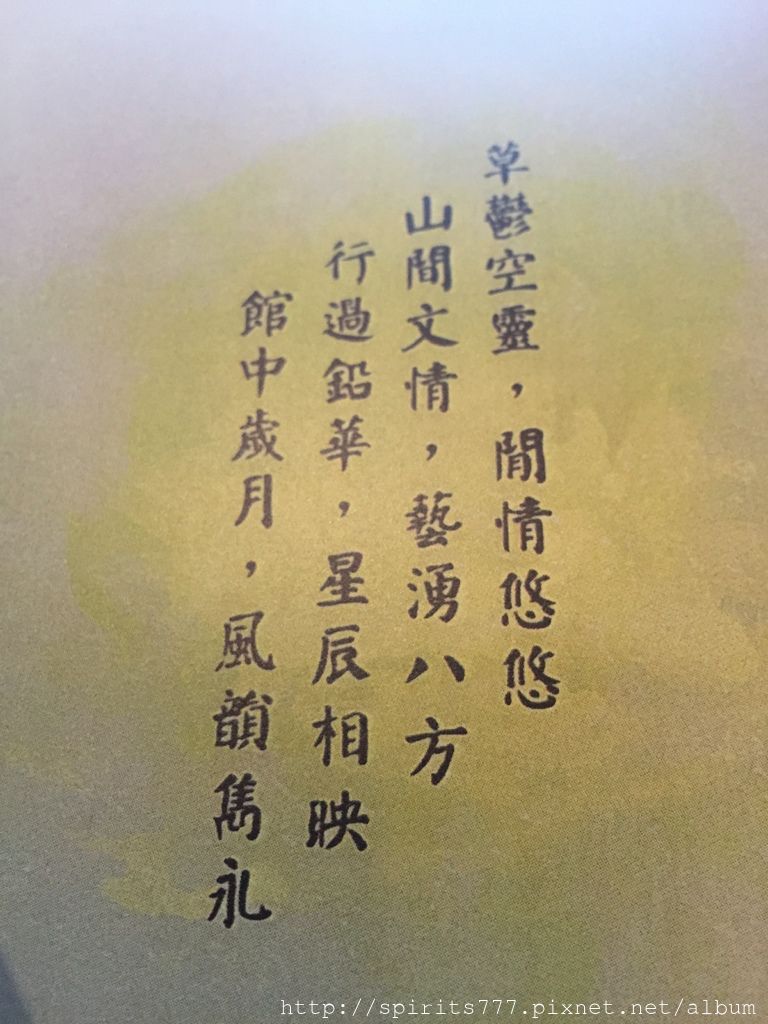 草鬱空靈，閒情悠悠
山間文情，藝湧八方
行過鉛華，星辰相映
館中歲月，風韻雋永
http://spirits777.pixnet.net/album